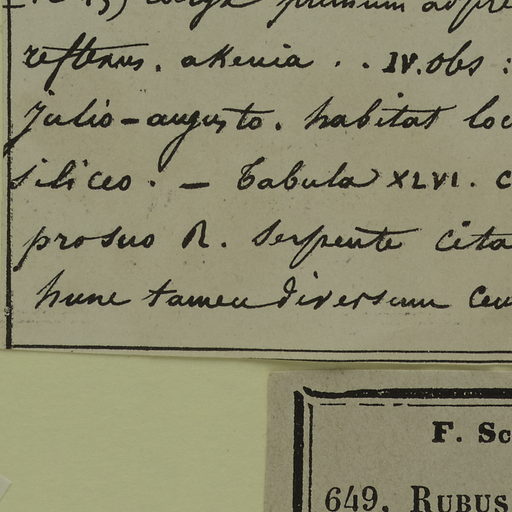 primum
reflexus. akenia .. IV. Obs:
julio-augusto. habitat lo
siliceo. — Tabula XLVI. C
pro suo R. Serpente cita
hunc tamen diversum ceu
F. Sc
649. RUBUS